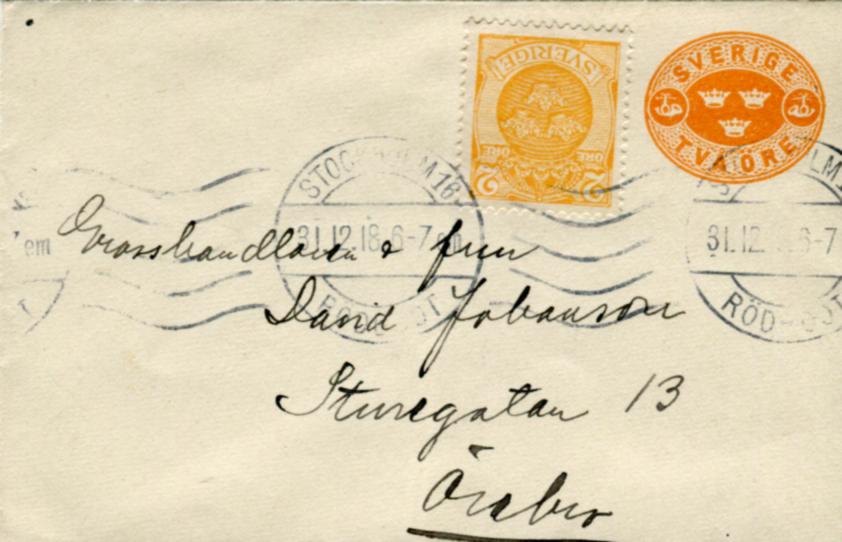 SVERIGE
2 ÖRE ÖRE 2
SVERIGE
TVÅ ÖRE
STOCKHOLM 16
31.12.18.6-7 em
RÖD-BOT
em
LM 1
31.12. 6-7
RÖD-BOT
Grosshandlaren & frun
David Johanson
Sturegatan 13
Örebro